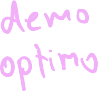 demo
optimo